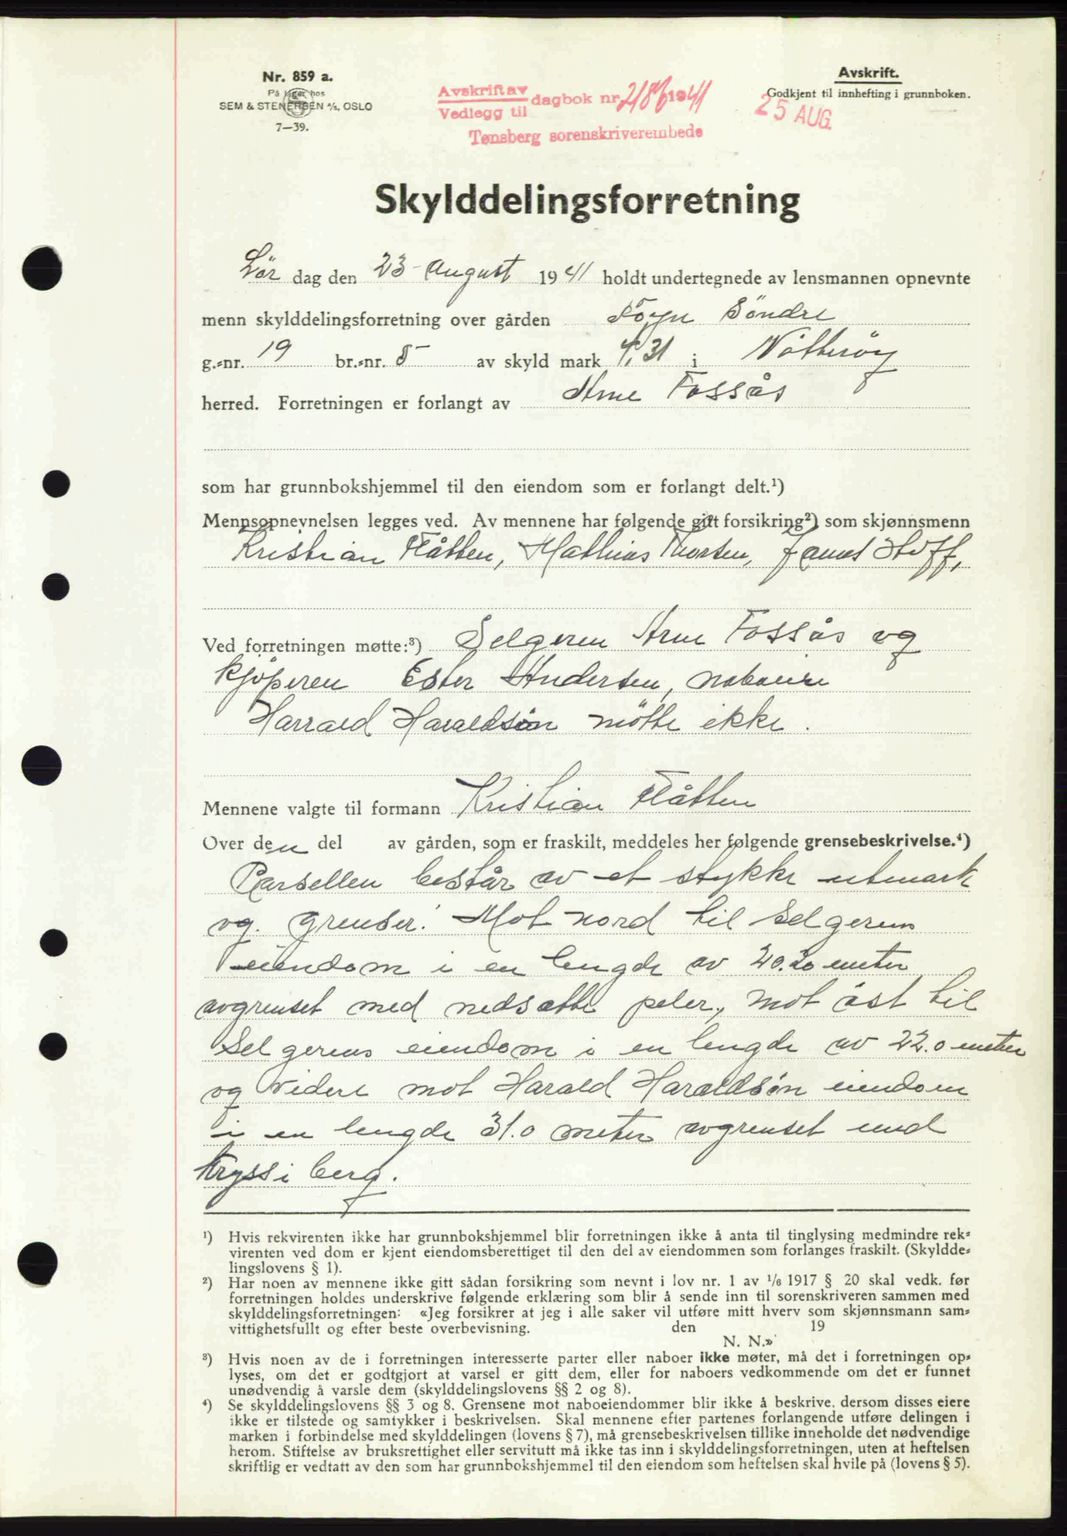 Nr. 859 a.
På lager hos
SEM & STENERSEN A/S, OSLO
7—39.
Avskrift av
Vedlegg til
dagbok nr. 2186 1941
Tønsberg sorenskriverembede
Avskrift.
Godkjent til innhefting i grunnboken.
25 AUG.
Skylddelingsforretning
Lør dag den 23 August 1941 holdt undertegnede av lensmannen opnevnte
menn skylddelingsforretning over gården Föyn Söndre
g.-nr. 19 br.-nr. 5 av skyld mark 4,31 i Nötteröy
herred. Forretningen er forlangt av Arne Fossås
som har grunnbokshjemmel til den eiendom som er forlangt delt.¹)
Mennsopnevnelsen legges ved. Av mennene har følgende gitt forsikring²) som skjønnsmenn
Kristian Flåtten, Mathias Thorsen, James Hoff,
Ved forretningen møtte:³) Selgeren Arne Fossås og
kjöperen Ester Andersen, naboeire
Harrald Haraldsön mötte ikke.
Mennene valgte til formann Kristian Flåtten
Over den del av gården, som er fraskilt, meddeles her følgende grensebeskrivelse.⁴)
Parsellen består av et stykke utmark
og. grenser: Mot nord til Selgerens
eiendom i en lengde av 20.20 meter
avgrenset med nedsatte peler, mot öst til
Selgerens eiendom i en lengde av 22.0 meter
og videre mot Harald Haraldsön eiendom
i en lengde 31.0 meter avgrenset med
kryss i berg.
¹) Hvis rekvirenten ikke har grunnbokshjemmel blir forretningen ikke å anta til tinglysing medmindre rek-
virenten ved dom er kjent eiendomsberettiget til den del av eiendommen som forlanges fraskilt. (Skyldde-
lingslovens § 1).
²) Har noen av mennene ikke gitt sådan forsikring som nevnt i lov nr. 1 av 1/6 1917 § 20 skal vedk. før
forretningen holdes underskrive følgende erklæring som blir å sende inn til sorenskriveren sammen med
skylddelingsforretningen: «Jeg forsikrer at jeg i alle saker vil utføre mitt hverv som skjønnsmann sam-
vittighetsfullt og efter beste overbevisning. den 19
N. N.»
³) Hvis noen av de i forretningen interesserte parter eller naboer ikke møter, må det i forretningen op-
lyses, om det er godtgjort at varsel er gitt dem, eller for naboers vedkommende om det er funnet
unødvendig å varsle dem (skylddelingslovens §§ 2 og 8).
⁴) Se skylddelingslovens §§ 3 og 8. Grensene mot naboeiendommer blir ikke å beskrive, dersom disses eiere
ikke er tilstede og samtykker i beskrivelsen. Skal mennene efter partenes forlangende utføre delingen i
marken i forbindelse med skylddelingen (lovens § 7), må grensebeskrivelsen tillike inneholde det nødvendige
herom. Stiftelse av bruksrettighet eller servitutt må ikke tas inn i skylddelingsforretningen, uten at heftelsen
skriftlig er vedtatt av den som har grunnbokshjemmel til den eiendom som heftelsen skal hvile på (lovens § 5).